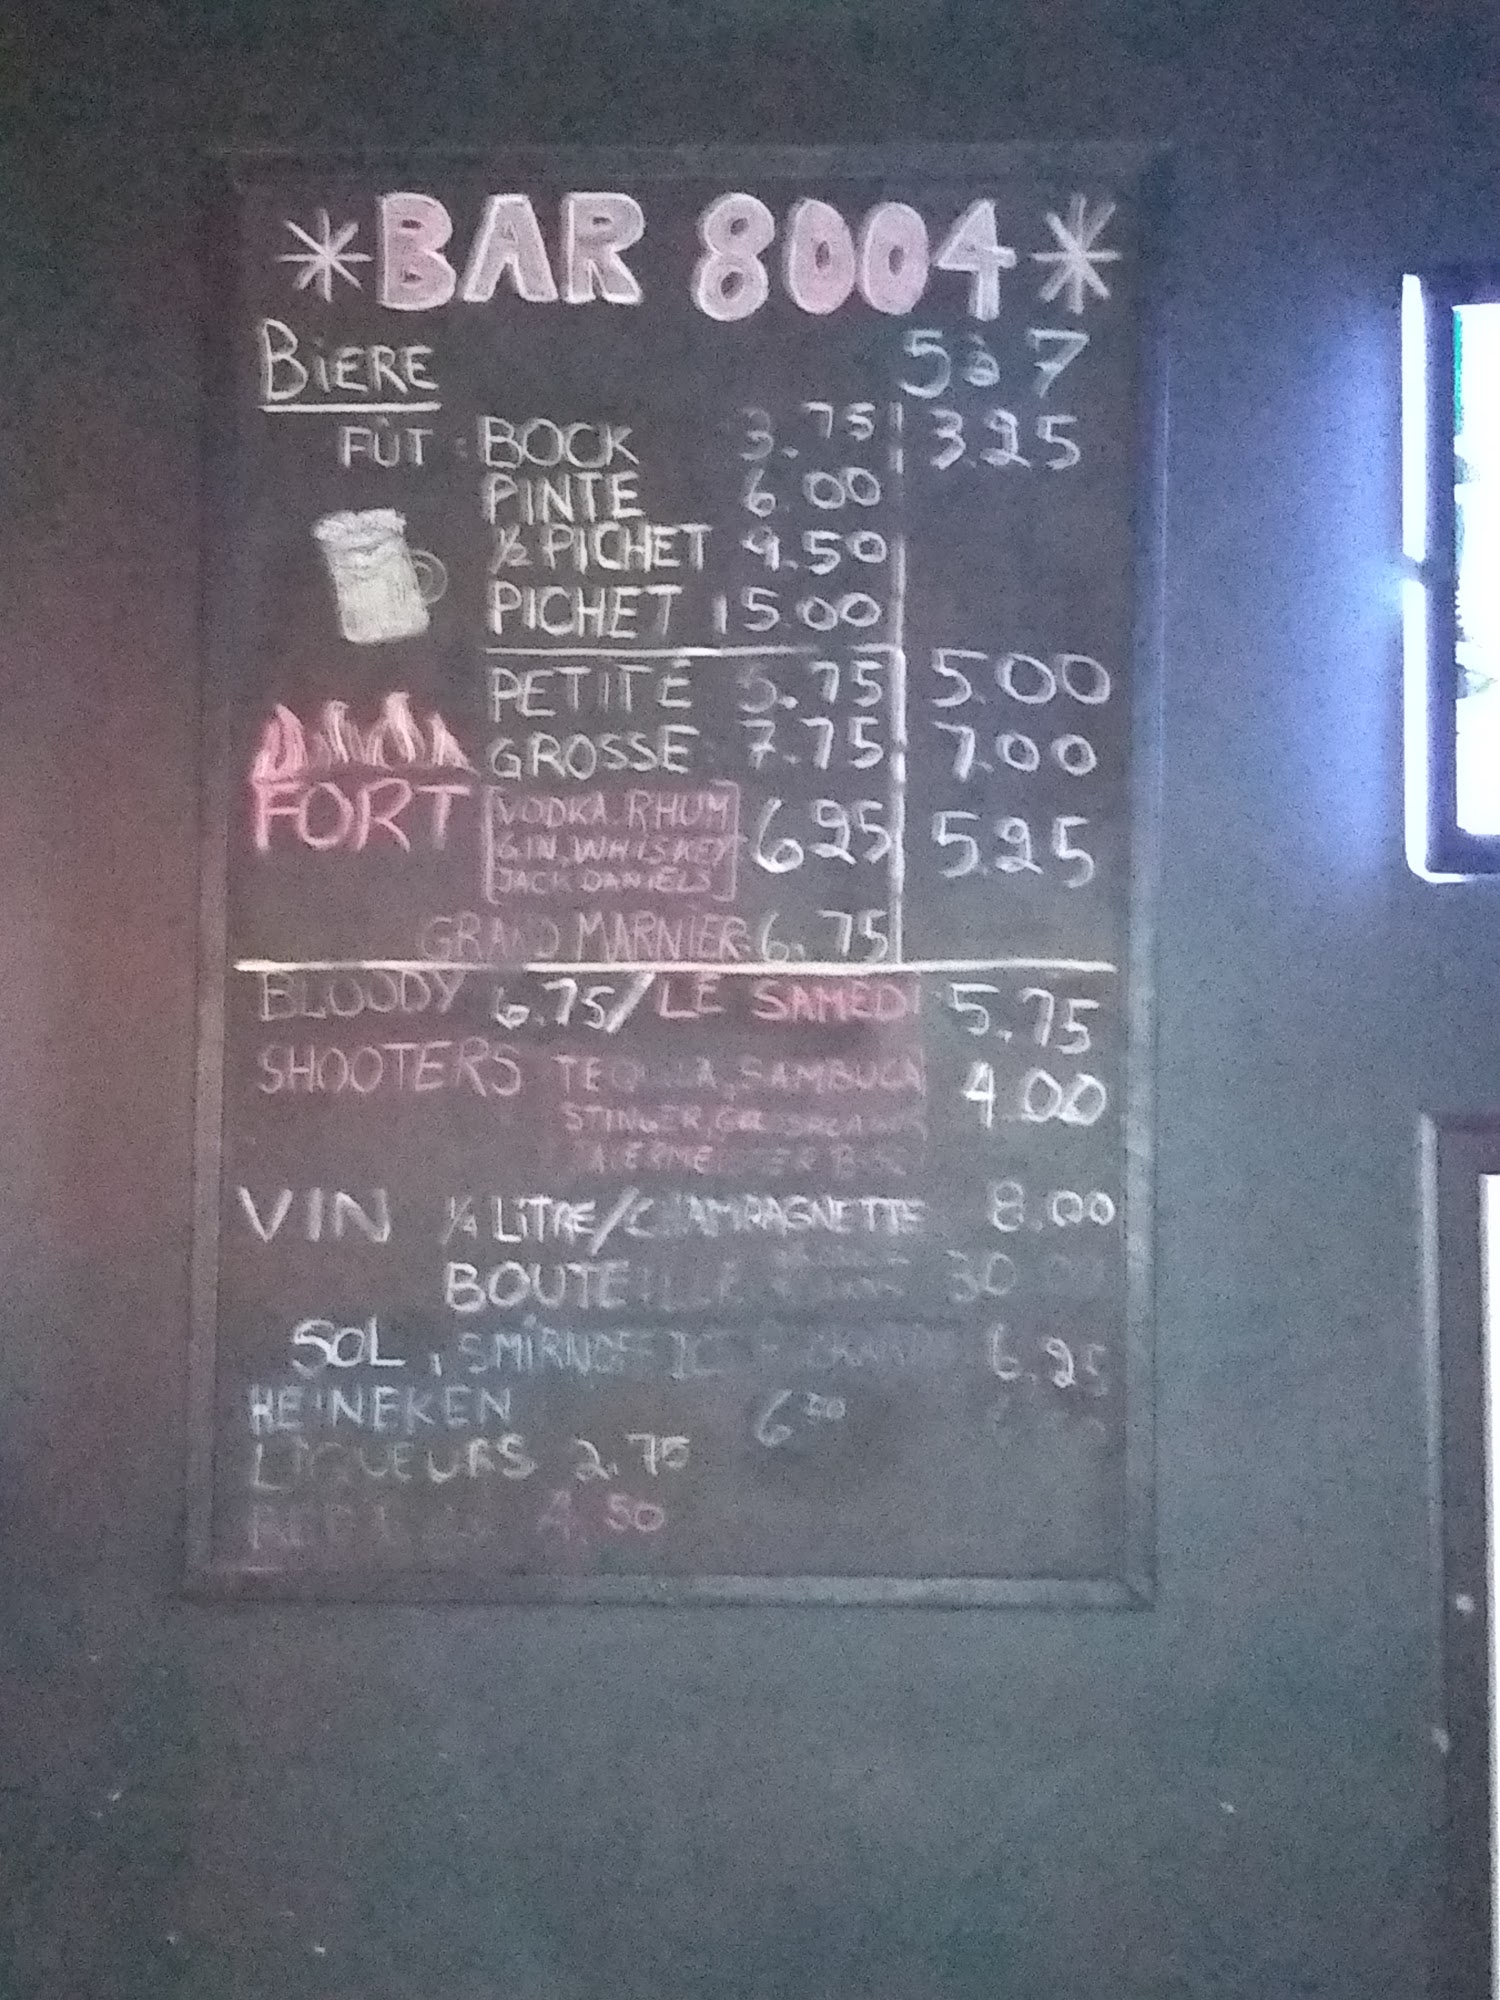 *BAR 8004*
BIERE 5 à 7
FÛT : BOCK 3.75 3.25
PINTE 6.00
½ PICHET 9.50
PICHET 15.00
PETITE 5.75 5.00
GROSSE 7.75 7.00
FORT VODKA RHUM 6.25 5.25
GIN, WHISKEY
JACK DANIELS
GRAND MARNIER 6.75
BLOODY 6.75/LE SAMEDI 5.75
SHOOTERS TEQUILA, SAMBUCA 4.00
STINGER,
VIN ¼ LITRE/CHAMPAGNETTE 8.00
BOUTEILLE 30
SOL, SMIRNOFF ICE 6.25
HEINEKEN
LIQUEURS 2.75
4.50